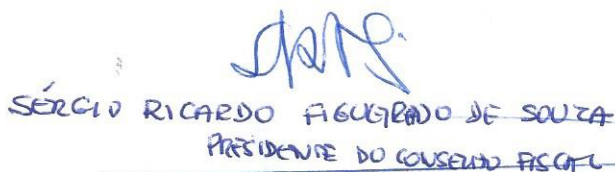 SÉRGIO RICARDO FIGUEIREDO DE SOUZA
PRESIDENTE DO CONSELHO FISCAL